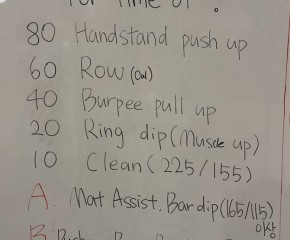 For Time of .
80 Handstand push up
60 Row (cal)
40 Burpee pull up
20 Ring dip (Muscle up)
10 Clean (225/155)
A. Mat Assist. Bar dip (165/115)
이상
B.